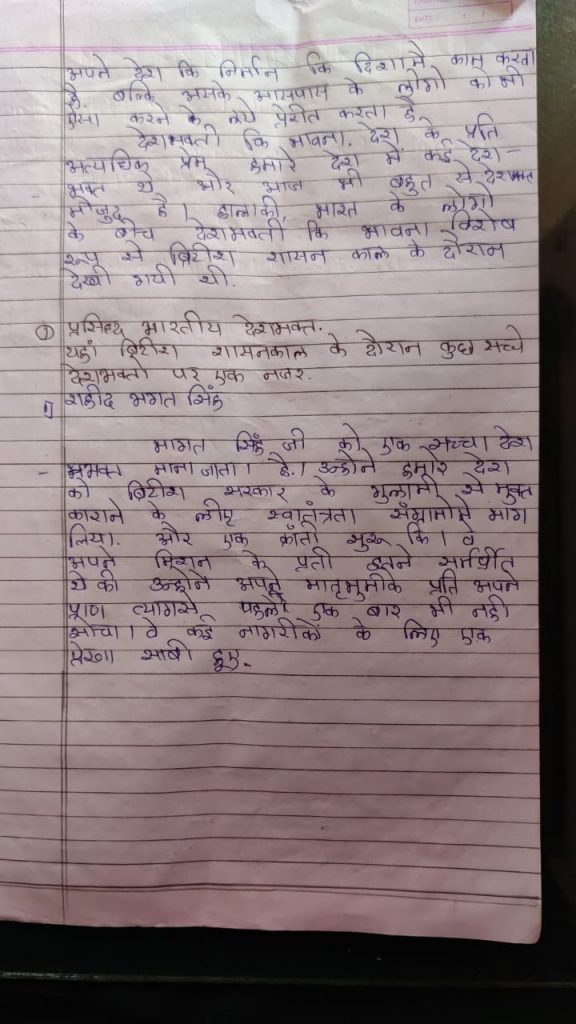 अपने देश कि निर्मान कि दिशामे काम करता
है बल्कि उसके आसपास के लोगो को भी
ऐसा करने के लिये प्रेरीत करता है.
देशभक्ती कि भावना. देश के प्रति
अत्यधिक प्रेम हमारे देश में कई देश-
भक्त थे और आज भी बहुत से देशभक्त
मौजुद है। हालाकी, भारत के लोगो
के बीच देशभक्ती कि भावना विशेष
रूप से ब्रिटीश शासन काल के दौरान
देखी गयी थी.
① प्रसिध्द भारतीय देशभक्त.
यहाँ ब्रिटीश शासनकाल के दौरान कुछ सच्चे
देशभक्तो पर एक नजर.
1] शहीद भगत सिंह
भागत सिंह जी को एक सच्चा देश
- भुभक्त माना जाता। है.। उन्होने हमारे देश
को ब्रिटीश सरकार के गुलामी से मुक्त
काराने के लीए स्वातंत्रता संग्रामोमे भाग
लिया. और एक क्राँती सुरू कि। वे
अपने मिशन के प्रती इतने सर्मर्पीत
थे की उन्होने अपने मातृभुमीके प्रति अपने
प्राण त्यागसे पहली एक बार भी नही
सोचा। वे कई नागरीकों के लिए एक
प्रेरणा साबी हुए.